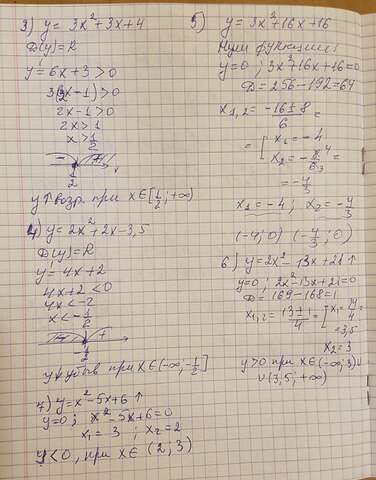 3) y = 3x²+3x+4
D(y)=R
y' = 6x+3>0
3(2x-1)>0
2x-1>0
2x>1
x>1/2
- +
1/2
y↑возр. при x∈[1/2;+∞)
4) y=2x²+2x-3,5
D(y)=R
y' = 4x+2
4x+2<0
4x<-2
x<-1/2
- +
-1/2
y↓убыв при x∈(-∞;-1/2]
7) y=x²-5x+6↑
y=0; x²-5x+6=0
x₁=3; x₂=2
y<0, при x∈(2;3)
5) y=3x²+16x+16
Нули функции:
y=0; 3x²+16x+16=0
D=256-192=64
x₁,₂=(-16±8)/6=
=[x₁=-4
x₂=-8/6=
=-4/3
x₁=-4; x₂=-4/3
(-4;0) (-4/3;0)
6) y=2x²-13x+21↑
y=0; 2x²-13x+21=0
D=169-168=1
x₁,₂=(13±1)/4=[x₁=14/4
=3,5
x₂=3
y>0 при x∈(-∞;3)∪
∪(3,5;+∞)